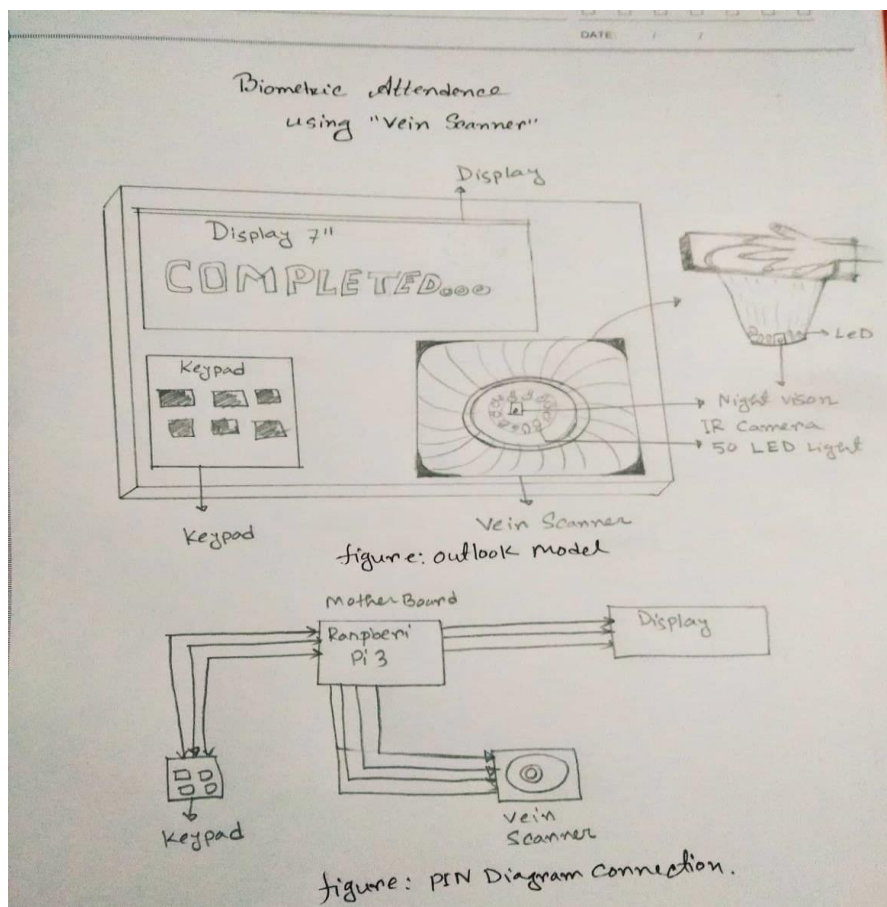 DATE: / /
Biometric Attendence
using "Vein Scanner"
Display
Display 7"
COMPLETED...
LED
Keypad
Night vison
IR Camera
50 LED Light
Keypad
Vein Scanner
figure: outlook model
Mother Board
Raspberi
Pi 3
Display
Keypad
Vein
Scanner
figure: PIN Diagram connection.